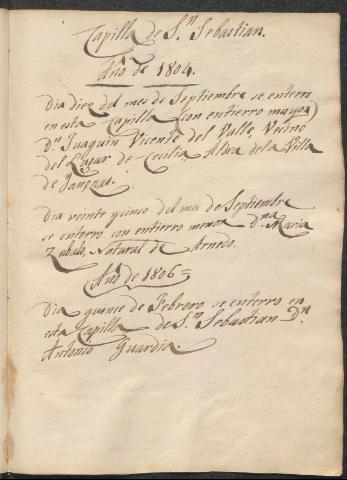 Capilla de S.n Sebastian.
Año de 1804.
Dia diez del mes de Septiembre se enterro
en esta Capilla (con entierro mayor)
D.n Juaquin Vicente del Valle, Vecino
del Lugar de Cecilia, Aldea de la Villa
de Yanguas.
Dia veinte y cinco del mes de Septiembre
se enterro con entierro menor D.na Maria
Zubalo, Natural de Arnedo.
Año de 1806=
Dia quince de Febrero se enterro en
esta Capilla de S.n Sebastian D.n
Antonio Guardia.